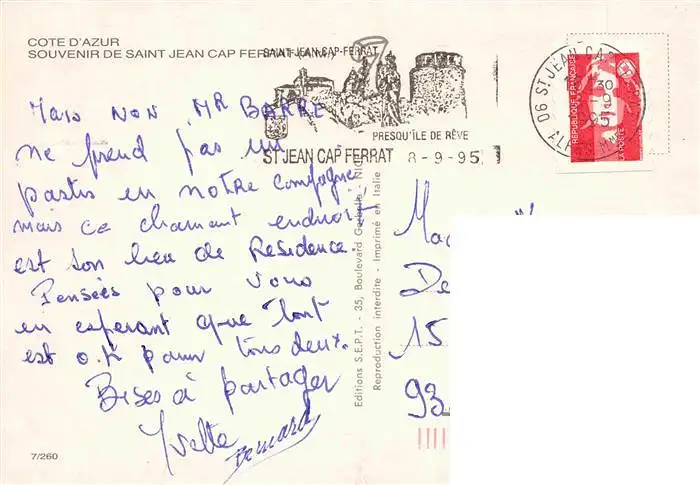 COTE D'AZUR
SOUVENIR DE SAINT JEAN CAP FERRAT
SAINT-JEAN-CAP-FERRAT
PRESQU'ÎLE DE RÊVE
ST JEAN CAP FERRAT 8-9-95
06 ST JEAN CA
30
-9
95
REPUBLIQUE FRANÇAISE
LA POSTE
Mais NON MR BARRE
ne prend pas un
pastis en notre compagnie
mais ce charmant endroit
est son lieu de Résidence.
Pensées pour vous
en esperant que tout
est o.K pour tous deux.
Bises à partager
Yvette Bernard
Editions S.E.P.T. - 35, Boulevard
Reproduction interdite - Imprimé en Italie
Ma
De
15
93
7/260